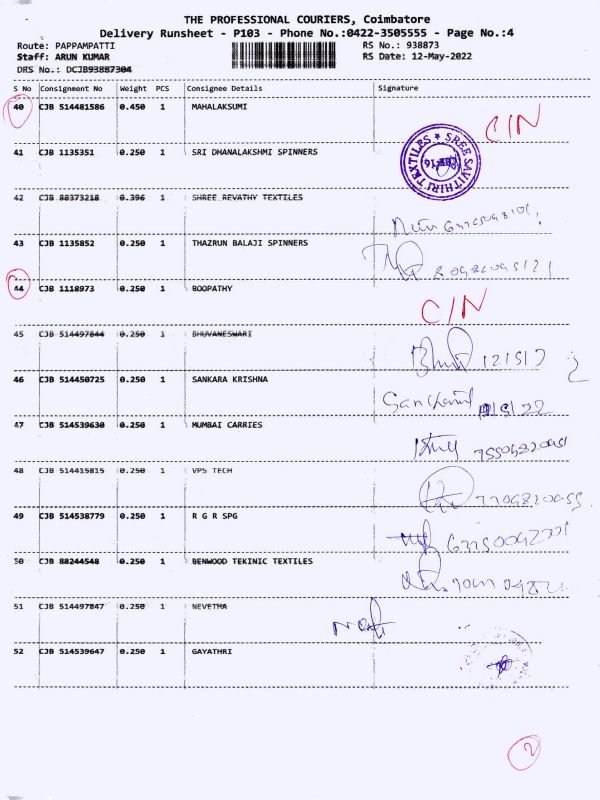 THE PROFESSIONAL COURIERS, Coimbatore
Delivery Runsheet - P103 - Phone No.:0422-3505555 - Page No.:4
Route: PAPPAMPATTI RS No.: 938873
Staff: ARUN KUMAR RS Date: 12-May-2022
DRS No.: DCJB93887304
S No Consignment No Weight PCS Consignee Details Signature
40 CJB 514481586 0.450 1 MAHALAKSUMI C/N
41 CJB 1135351 0.250 1 SRI DHANALAKSHMI SPINNERS
SREE SAVITHIRI TEXTILES ★
42 CJB 88373218 0.396 1 SHREE REVATHY TEXTILES
43 CJB 1135852 0.250 1 THAZRUN BALAJI SPINNERS
44 CJB 1118973 0.250 1 BOOPATHY C/N
45 CJB 514497844 0.250 1 BHUVANESWARI
46 CJB 514450725 0.250 1 SANKARA KRISHNA
47 CJB 514539630 0.250 1 MUMBAI CARRIES
48 CJB 514415815 0.250 1 VPS TECH
49 CJB 514538779 0.250 1 R G R SPG
50 CJB 88244548 0.250 1 BENWOOD TEKINIC TEXTILES
51 CJB 514497847 0.250 1 NEVETHA
52 CJB 514539647 0.250 1 GAYATHRI
2